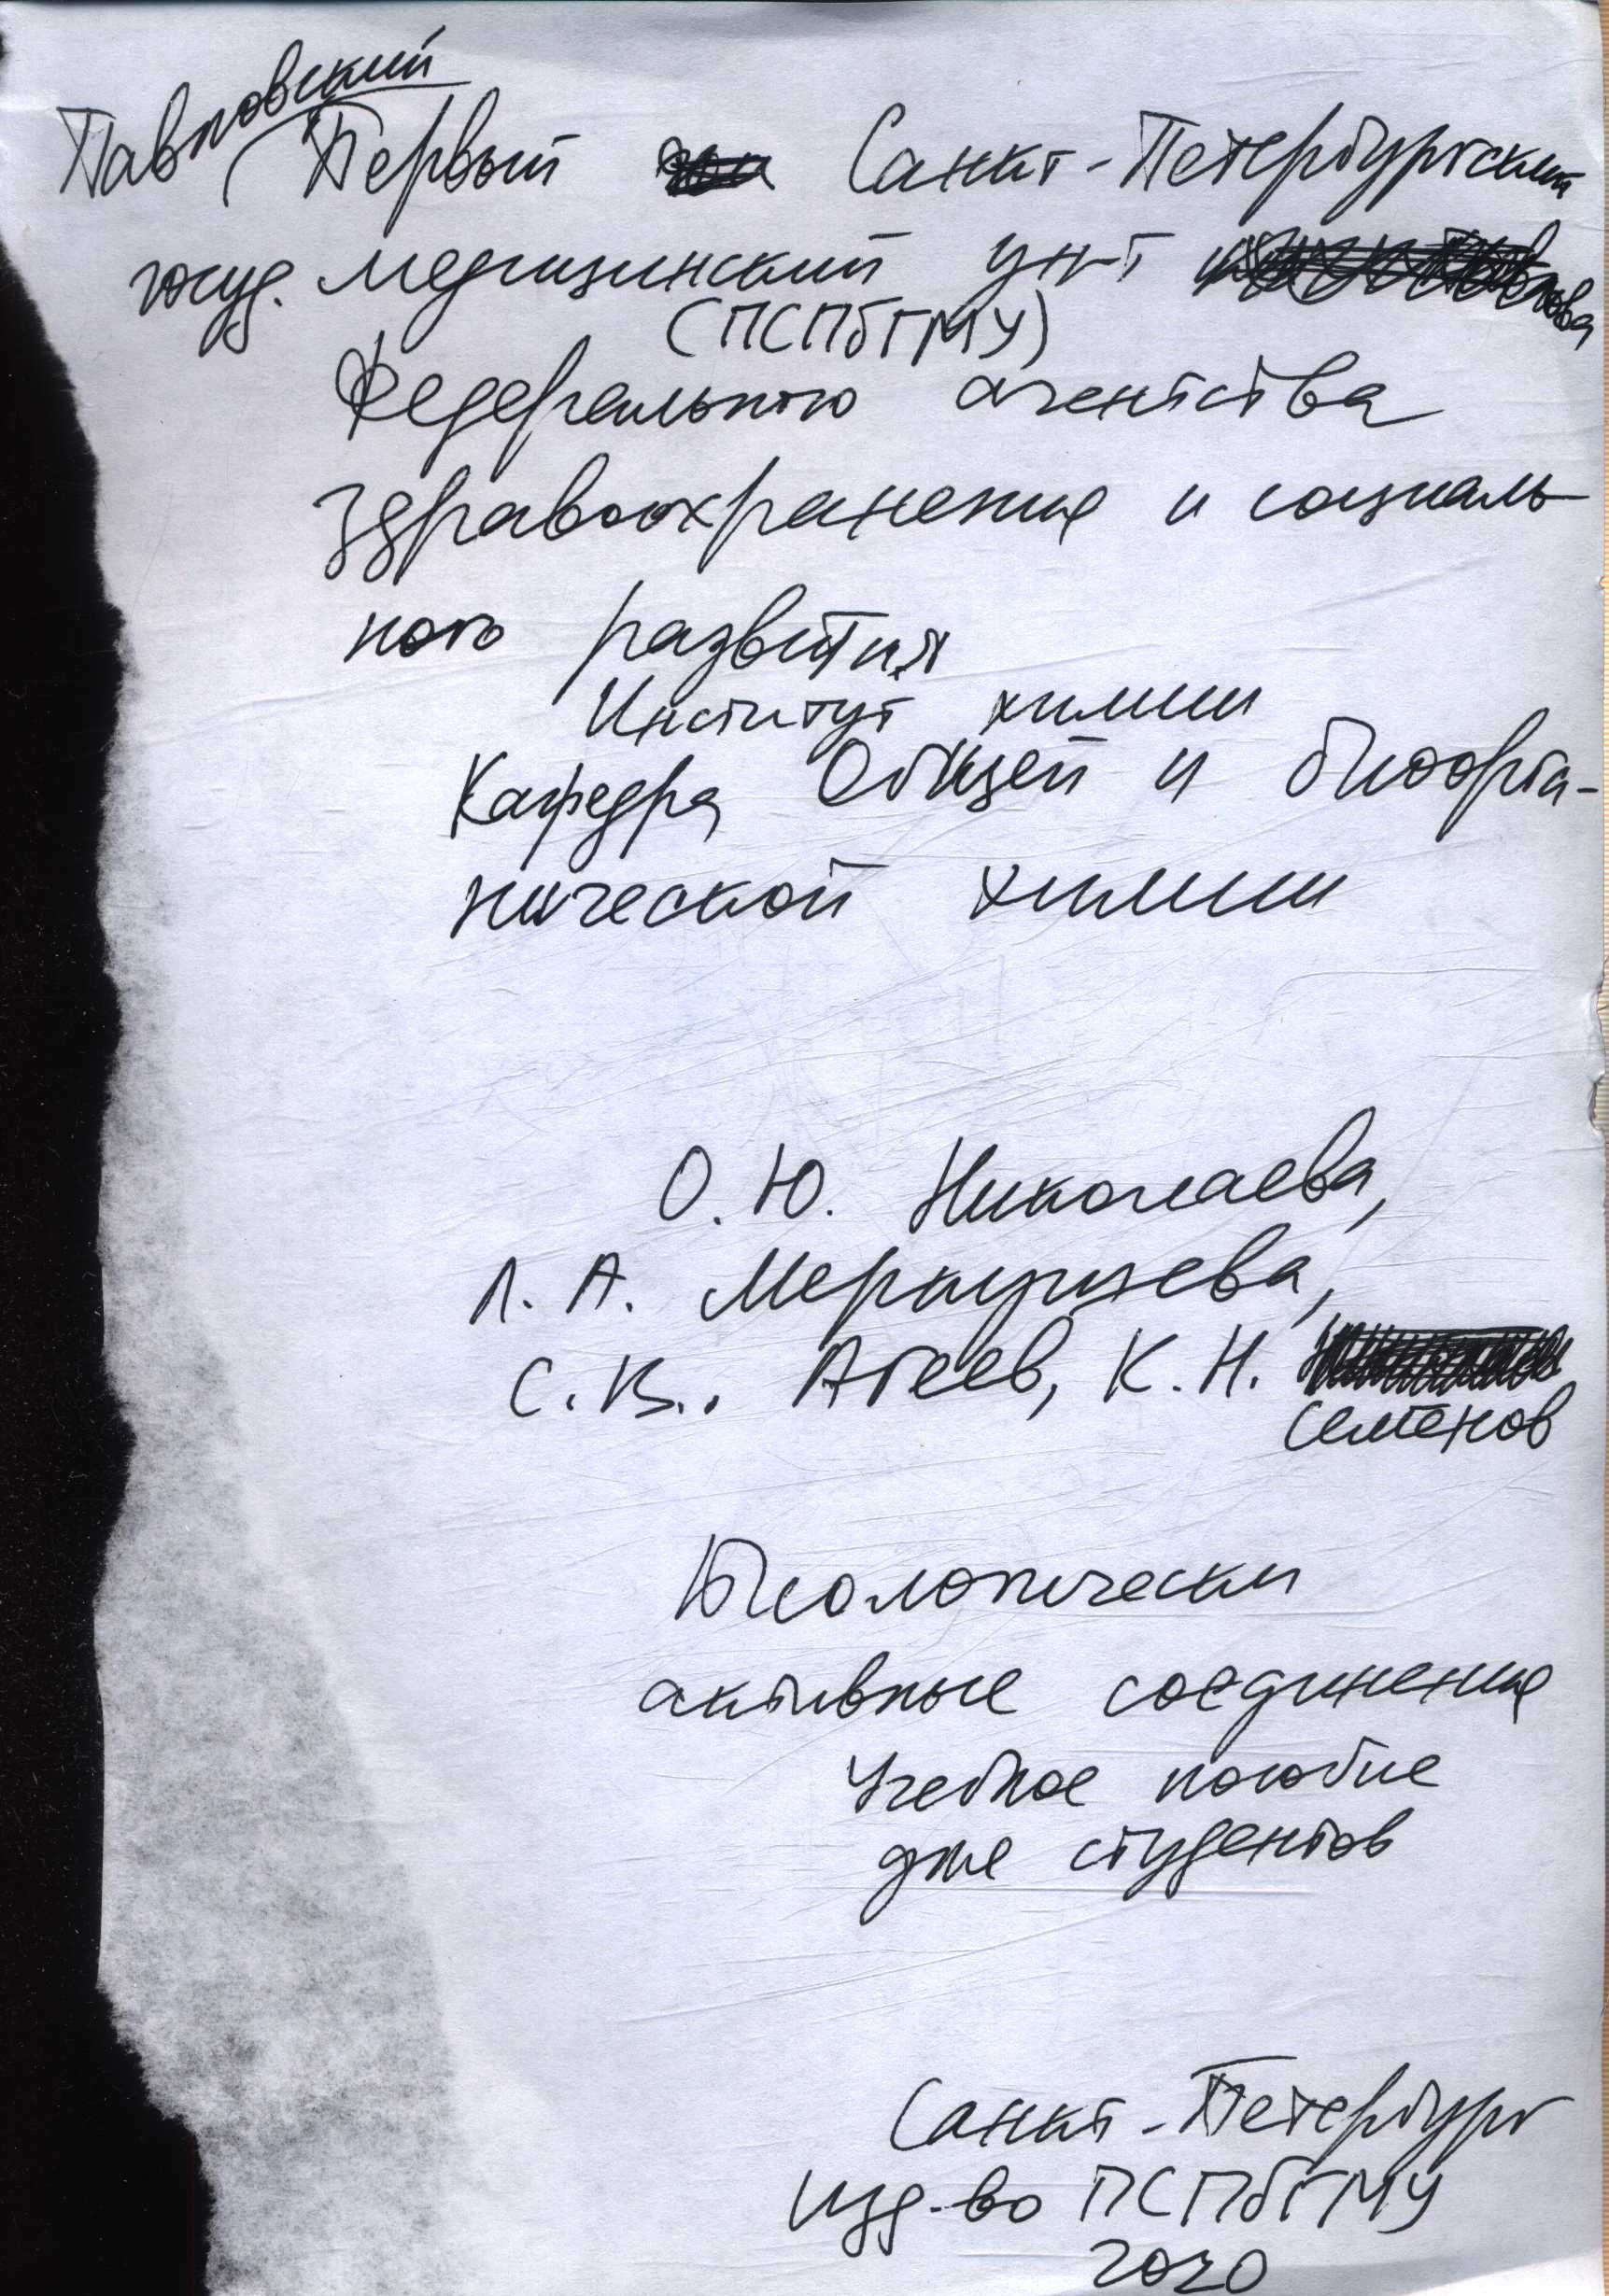 Павловский
(Первый Санкт-Петербургский
госуд. медицинский ун-т
(ПСПбГМУ)
Федерального агентства
здравоохранения и социаль-
ного развития
Институт химии
Кафедра Общей и биоорга-
нической химии
О. Ю. Николаева,
Л. А. Меркушева,
С. В.. Агеев, К. Н.
Семенов
Биологически
активные соединения
Учебное пособие
для студентов
Санкт-Петербург
Изд-во ПСПбГМУ
2020